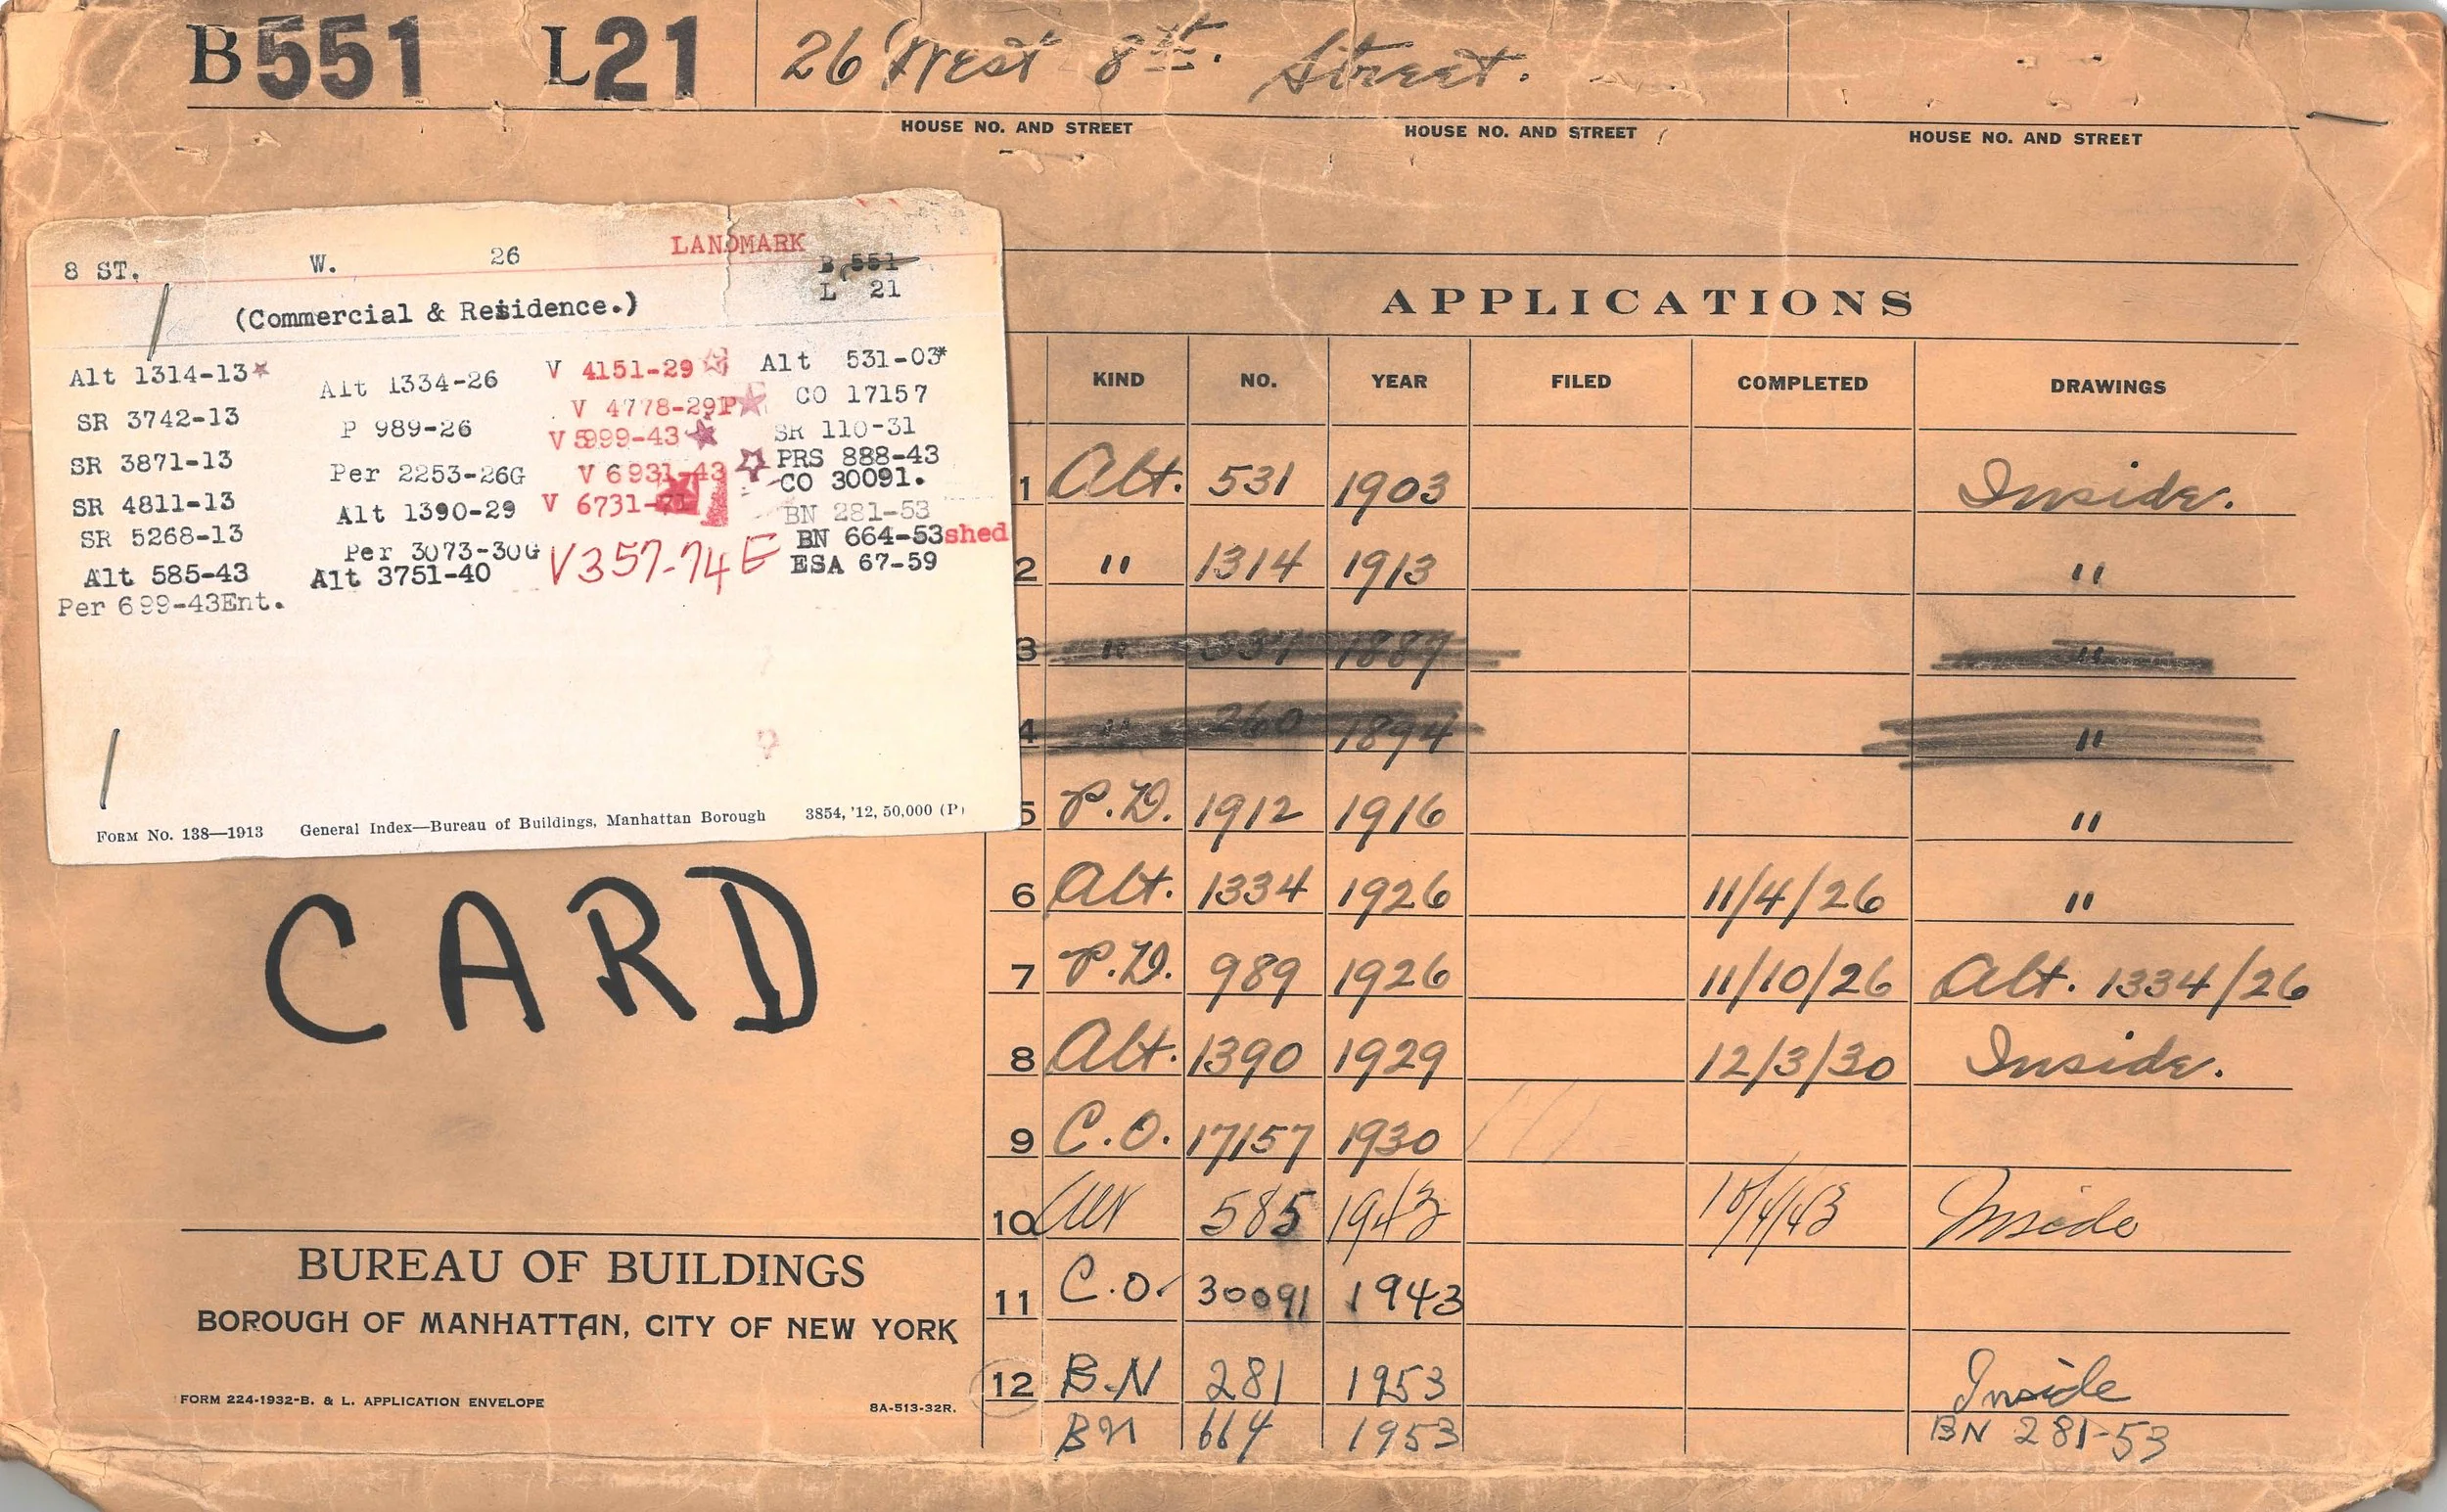 B551 L21 26 West 8th. Street.
HOUSE NO. AND STREET HOUSE NO. AND STREET HOUSE NO. AND STREET
8 ST. W. 26 LANDMARK B 551
L 21
(Commercial & Residence.)
Alt 1314-13* Alt 1334-26 V 4151-29 Alt 531-03*
SR 3742-13 P 989-26 V 4778-29P CO 17157
SR 3871-13 Per 2253-26G V 5999-43 SR 110-31
SR 4811-13 Alt 1390-29 V 6931-43 PRS 888-43
SR 5268-13 Per 3073-30G V 6731-71 CO 30091.
Alt 585-43 Alt 3751-40 V357-74E BN 281-53
Per 699-43Ent. BN 664-53shed
ESA 67-59
FORM No. 138—1913 General Index—Bureau of Buildings, Manhattan Borough 3854, '12, 50,000 (P)
CARD
BUREAU OF BUILDINGS
BOROUGH OF MANHATTAN, CITY OF NEW YORK
FORM 224-1932-B. & L. APPLICATION ENVELOPE 8A-513-32R.
APPLICATIONS
KIND NO. YEAR FILED COMPLETED DRAWINGS
1 Alt. 531 1903 Inside.
2 " 1314 1913 "
3 " 1887 "
4 " 260 1894 "
5 P.D. 1912 1916 "
6 Alt. 1334 1926 11/4/26 "
7 P.D. 989 1926 11/10/26 Alt. 1334/26
8 Alt. 1390 1929 12/3/30 Inside.
9 C.O. 17157 1930
10 Alt 585 1943 Inside
11 C.O. 30091 1943
12 B.N 281 1953 Inside
BN 664 1953 BN 281-53